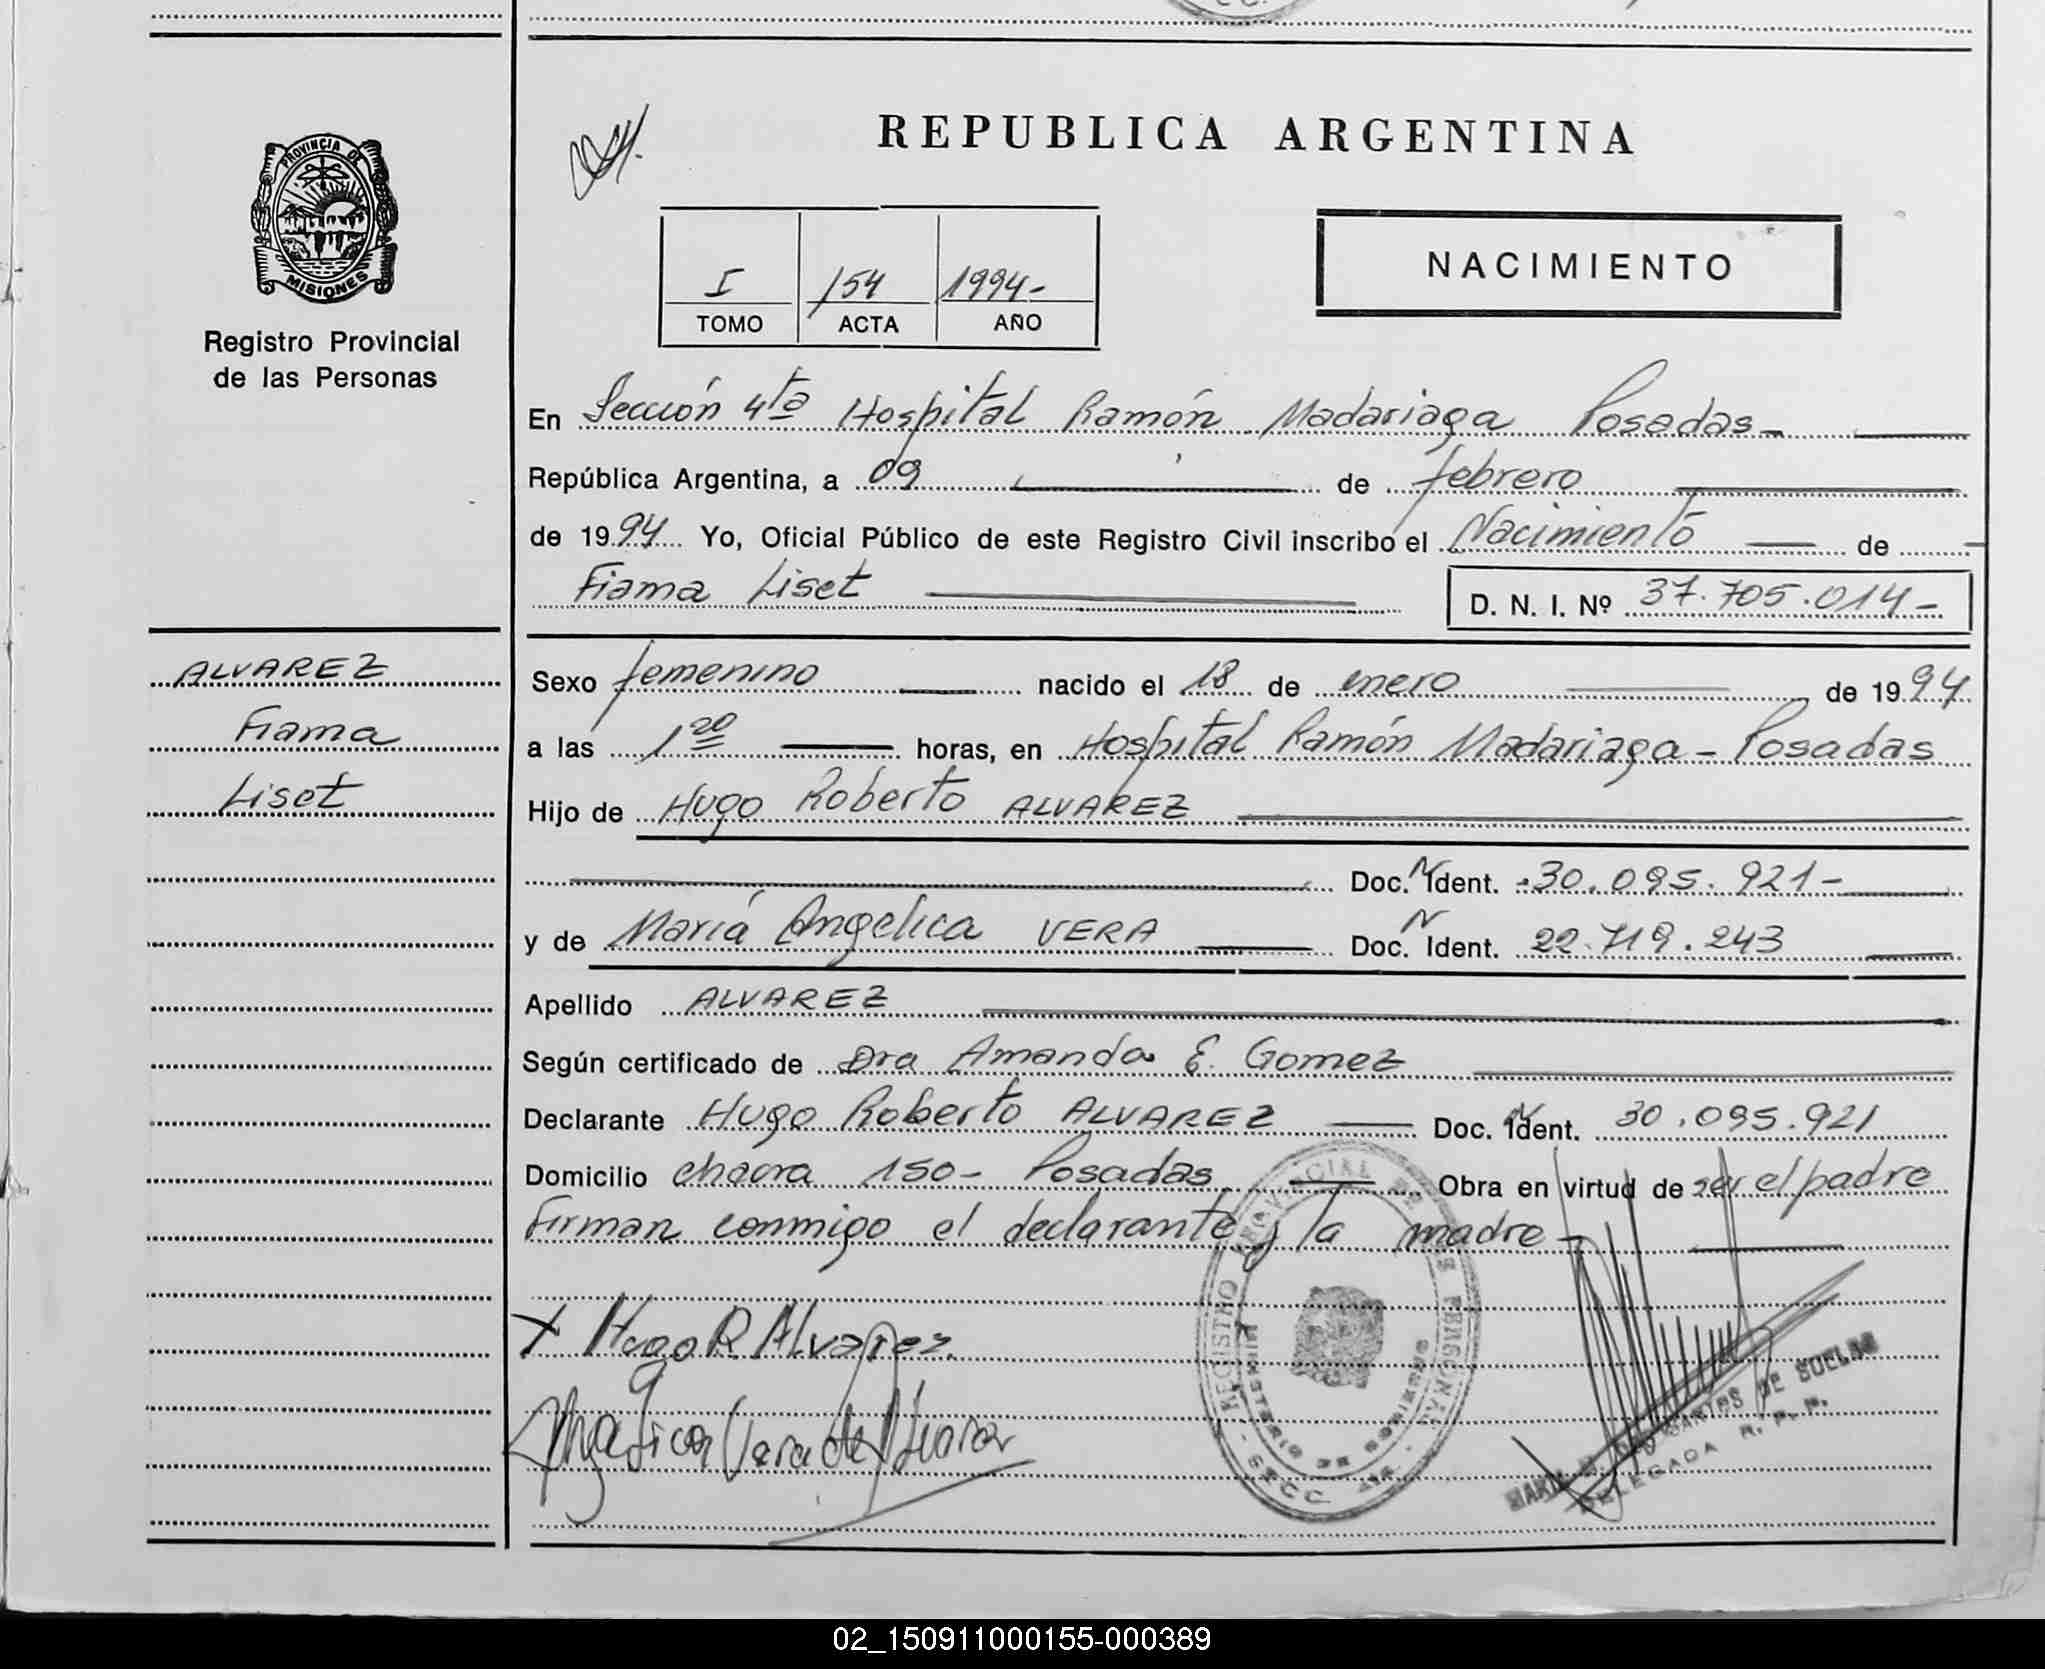 REPUBLICA ARGENTINA
PROVINCIA DE
MISIONES
Registro Provincial
de las Personas
NACIMIENTO
I 154 1994-
TOMO ACTA AÑO
En Sección 4ta Hospital Ramón Madariaga Posadas-
República Argentina, a 09 de febrero
de 1994 Yo, Oficial Público de este Registro Civil inscribo el Nacimiento de
Fiama Liset
D. N. I. Nº 37.705.014-
ALVAREZ
Fiama
Liset
Sexo femenino nacido el 18 de enero de 1994
a las 1 20 horas, en Hospital Ramón Madariaga - Posadas
Hijo de Hugo Roberto ALVAREZ
Doc. N Ident. 30.095.921-
y de María Angelica VERA Doc. N Ident. 22.719.243
Apellido ALVAREZ
Según certificado de Dra Amanda E. Gomez
Declarante Hugo Roberto ALVAREZ Doc. N Ident. 30.095.921
Domicilio chacra 150- Posadas Obra en virtud de ser el padre
Firman conmigo el declarante y la madre-
x Hugo R. Alvarez.
Angelica Vera de Alvarez
REGISTRO PROVINCIAL DE LAS PERSONAS
MINISTERIO DE GOBIERNO
SECC. 4ta.
DE SUELAS
DELEGADA R. P. P.
02_150911000155-000389